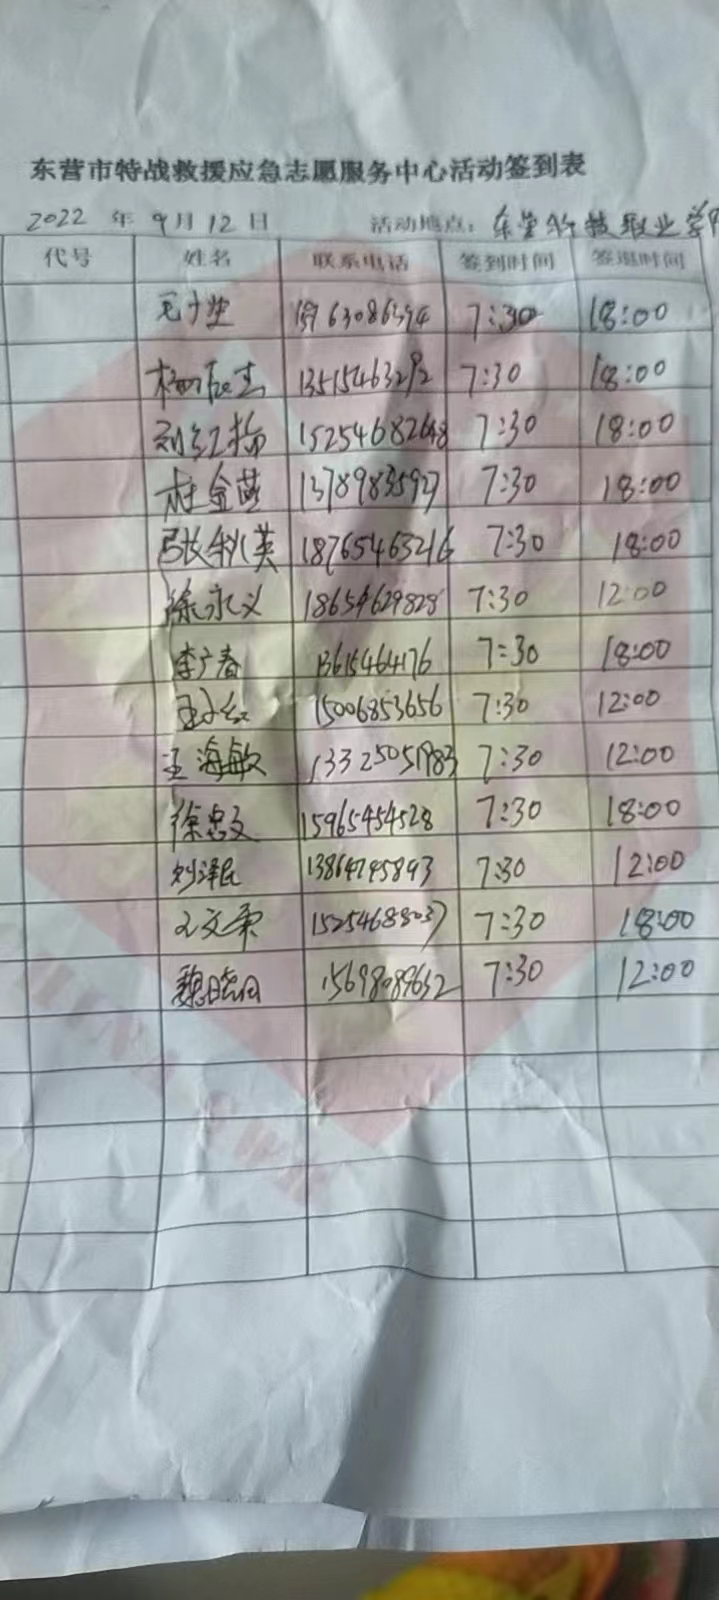 东营市特战救援应急志愿服务中心活动签到表
2022 年 9月 12 日 活动地点: 东营科技职业学
代号 姓名 联系电话 签到时间 签退时间
7:30 18:00
13515463292 7:30 18:00
刘红梅 15254682648 7:30 18:00
杜金燕 13789835927 7:30 18:00
张秋英 18765463216 7:30 18:00
徐永义 18654629828 7:30 12:00
李广春 13615464176 7:30 18:00
15006853656 7:30 12:00
王海敏 13325051983 7:30 12:00
徐忠文 15965454528 7:30 18:00
刘泽民 13864795893 7:30 12:00
15254688037 7:30 18:00
魏晓白 15698089652 7:30 12:00